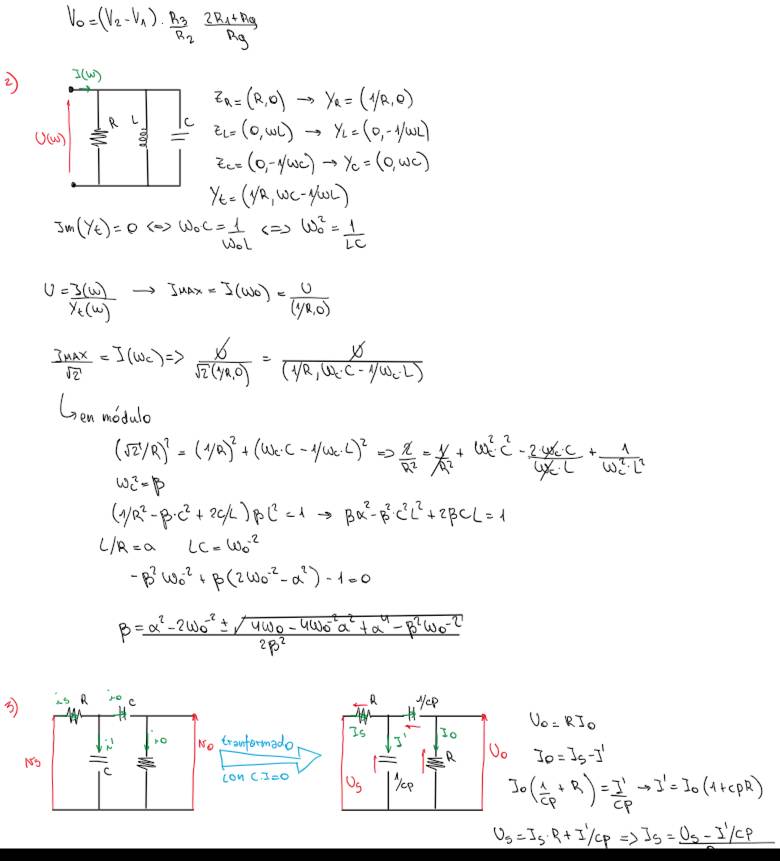 V₀ = (V₂ - V₁) · R₃/R₂ (2R₁ + Rg)/Rg
2)
I(ω)
U(ω)
R
L
C
Z_R = (R, 0) → Y_R = (1/R, 0)
Z_L = (0, ωL) → Y_L = (0, -1/ωL)
Z_C = (0, -1/ωC) → Y_C = (0, ωC)
Y_t = (1/R, ωC - 1/ωL)
Im(Y_t) = 0 <=> ω₀C = 1/(ω₀L) <=> ω₀² = 1/(LC)
U = I(ω)/Y_t(ω) → I_MAX = I(ω₀) = U/(1/R, 0)
I_MAX/√2 = I(ω_c) => U/(√2(1/R, 0)) = U/(1/R, ω_c·C - 1/ω_c·L)
↳ en módulo
(√2/R)² = (1/R)² + (ω_c·C - 1/ω_c·L)² => 2/R² = 1/R² + ω_c²·C² - (2·ω_c·C)/(ω_c·L) + 1/(ω_c²·L²)
ω_c² = β
(1/R² - β·C² + 2C/L) β L² = 1 → βα² - β²·C²L² + 2βCL = 1
L/R = α LC = ω₀⁻²
-β²ω₀⁻² + β(2ω₀⁻² - α²) - 1 = 0
β = (α² - 2ω₀⁻² ± √(4ω₀ - 4ω₀⁻²α² + α⁴ - β²ω₀⁻²))/(2β²)
3)
is
R
io
C
Ns
i'
C
io
No
tranformado
con CI=0
R
1/Cp
Is
I'
Io
Us
1/Cp
R
Uo
Uo = R Io
Io = Is - I'
Io(1/Cp + R) = I'/Cp → I' = Io(1 + CpR)
Us = Is·R + I'/Cp => Is = Us - I'/Cp